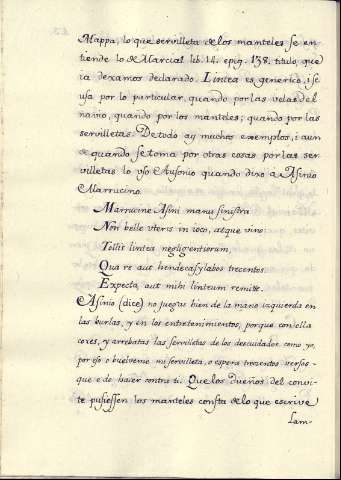 Mappa, lo que servilleta de los manteles se en-
tiende lo de Marcial lib. 14. epig. 138. titulo, que
ia dexamos declarado. Lintea es generico, i se
usa por lo particular, quando por las velas del
navio, quando por los manteles, quando por las
servilletas. De todo ay muchos exemplos, i aun
de quando se toma por otras cosas por las ser-
villetas lo uso Ausonio quando dixo a Asinio
Marrucino.
Marrucine Asini manu sinistra
Non belle uteris in ioco, atque vino
Tollis lintea negligentiorum,
Qua re aut hendecasyllabos trecentos
Expecta, aut mihi linteum remitte.
Asinio (dice) no juegas bien de la mano izquierda en
las burlas, y en los entretenimientos, porque con ella
coxes, y arrebatas las servilletas de los descuidados como yo,
por eso o buelveme mi servilleta, o espera trezientos versos
que e de hacer contra ti. Que los dueños del convi-
te pusiessen los manteles consta de lo que escrive
Lam-